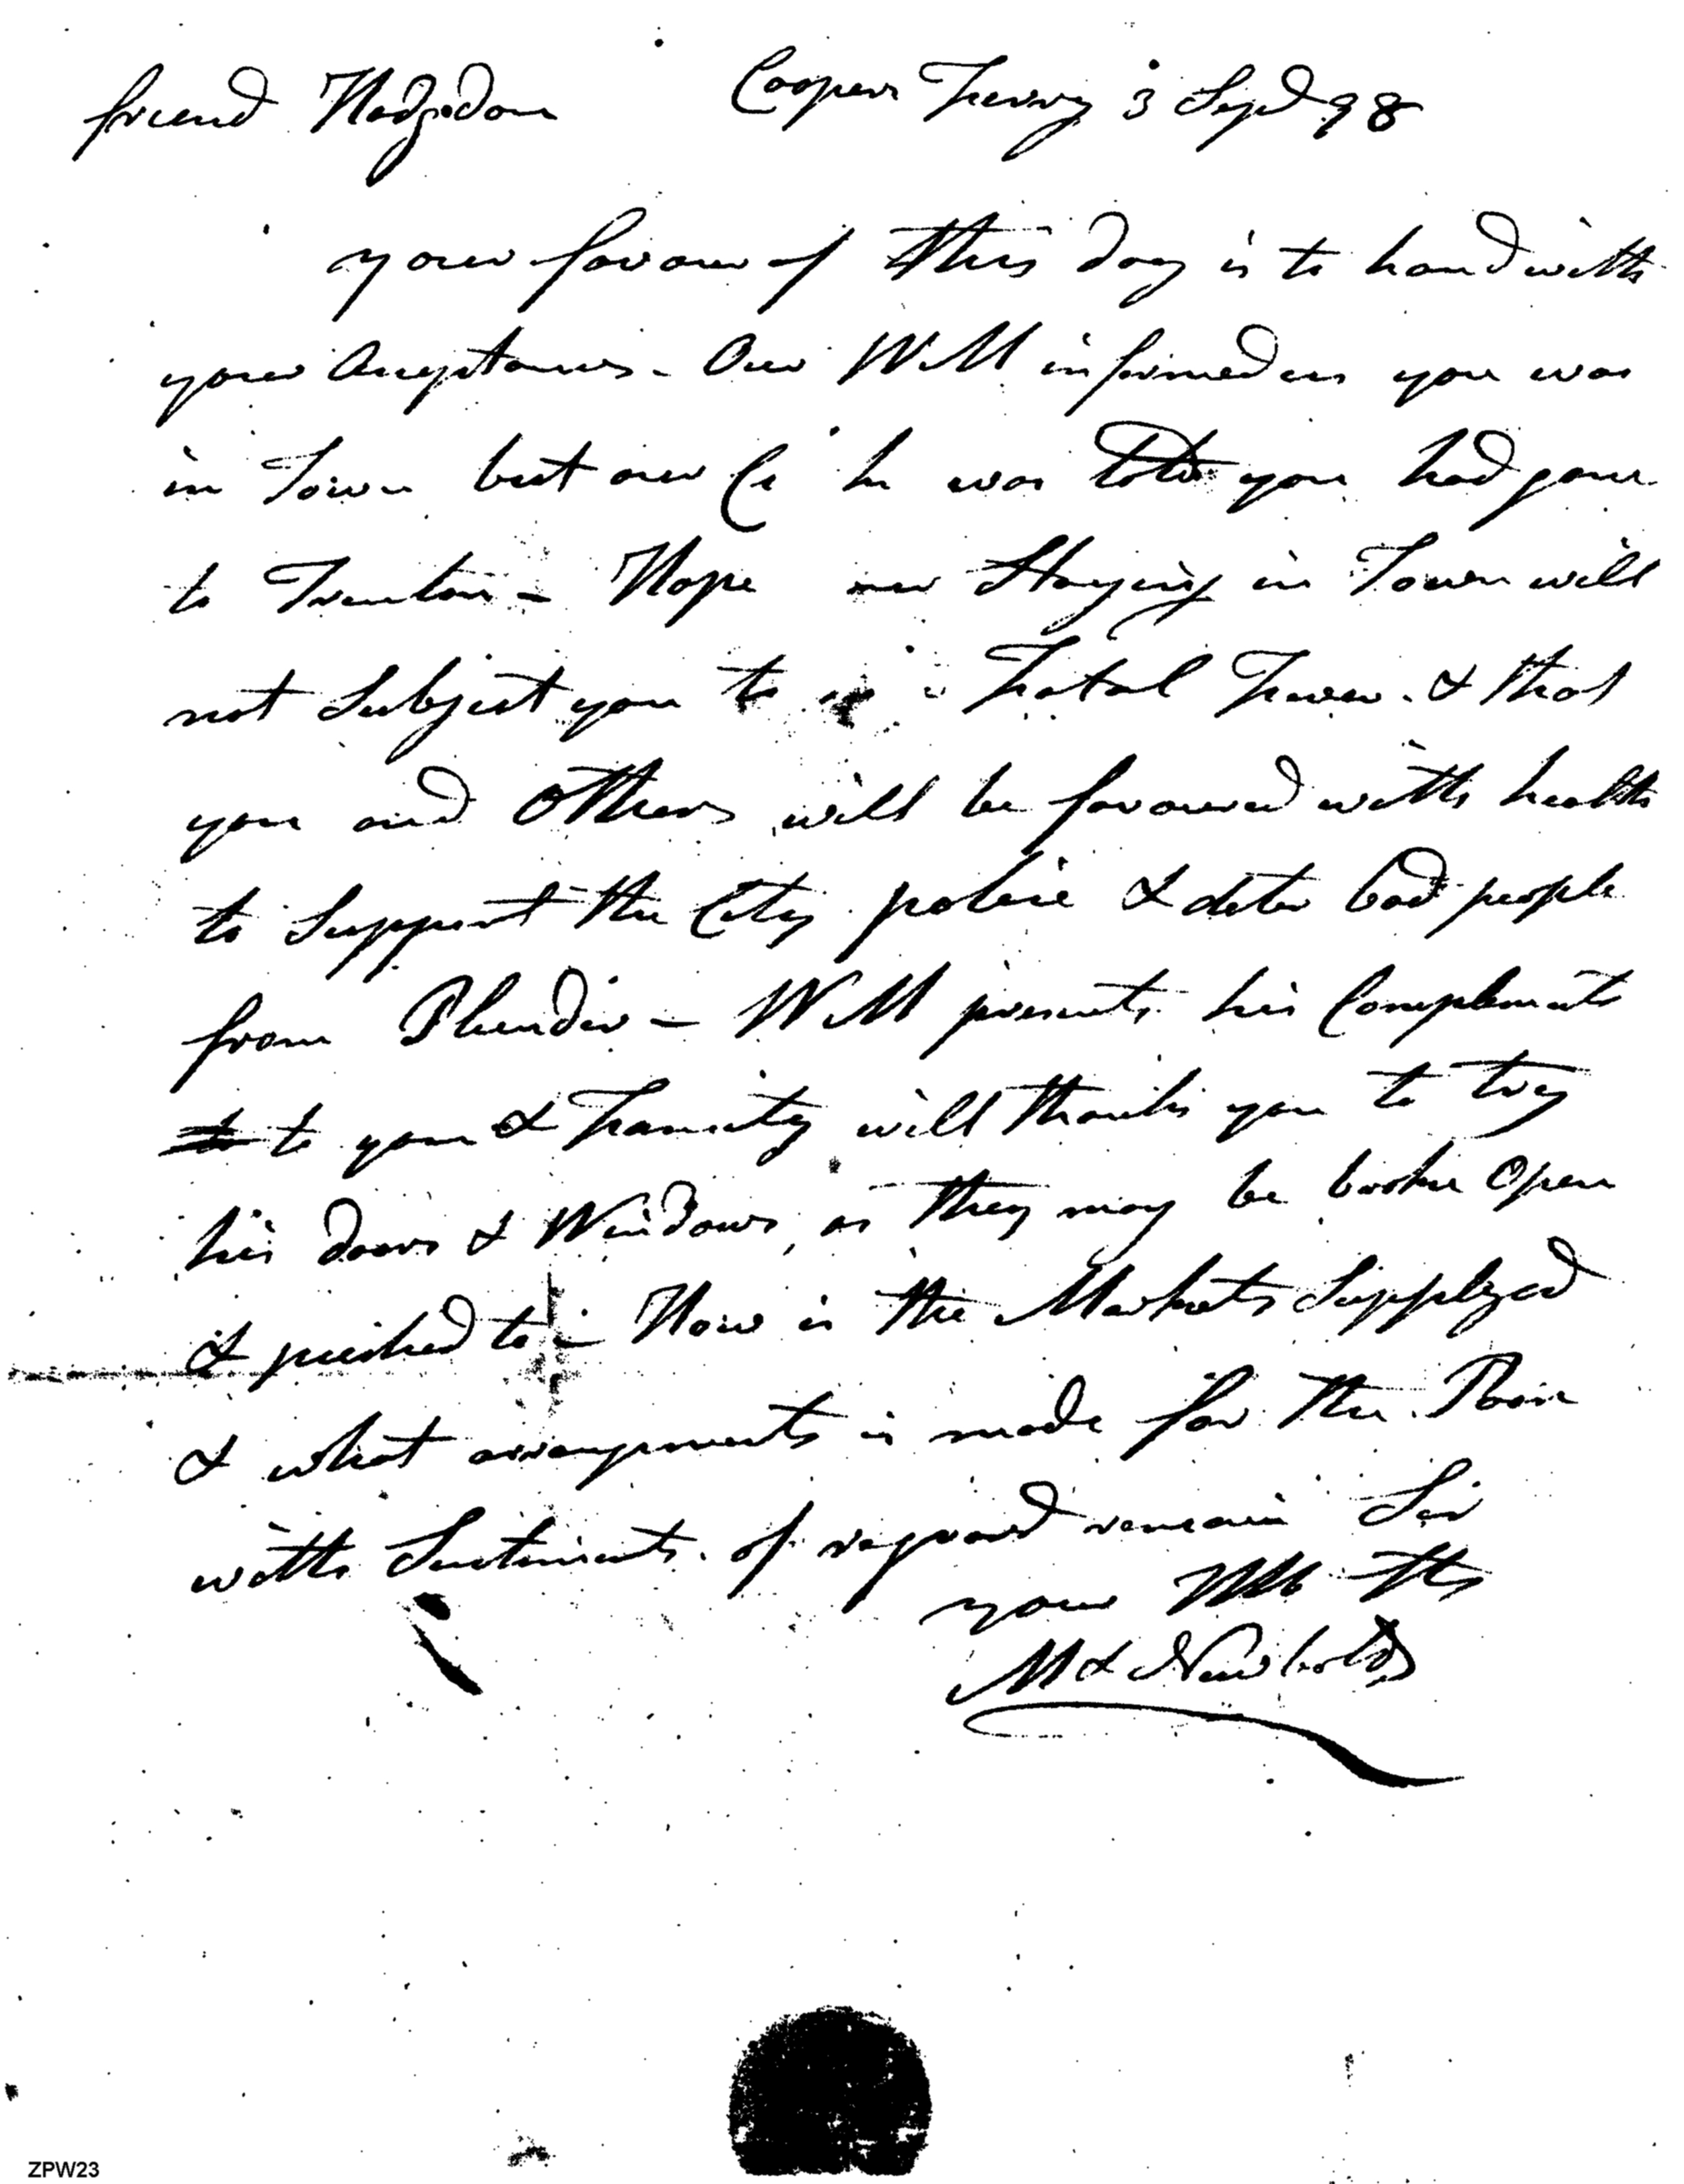 friend Hodgdon Coopers Ferry 3 Sepr 98
your favour of this day is to hand with
your Acceptances - Our WM informed us you was
in Town but our he was told you had gone
to Trenton - Hope Staying in Town will
not Subject you to a Fatal Fever & that
you and Others will be favoured with health
to Support the City police & deter bad people
from Plunder - WM presents his Complements
to you & Family will thank you to try
his doors & Windows, as they may be broke Open
& pushed to - How is the Markets Supplyed
& what arrangements is made for the Poor
with Sentiments of regard remain Sir
your
M & Newbolds
ZPW23